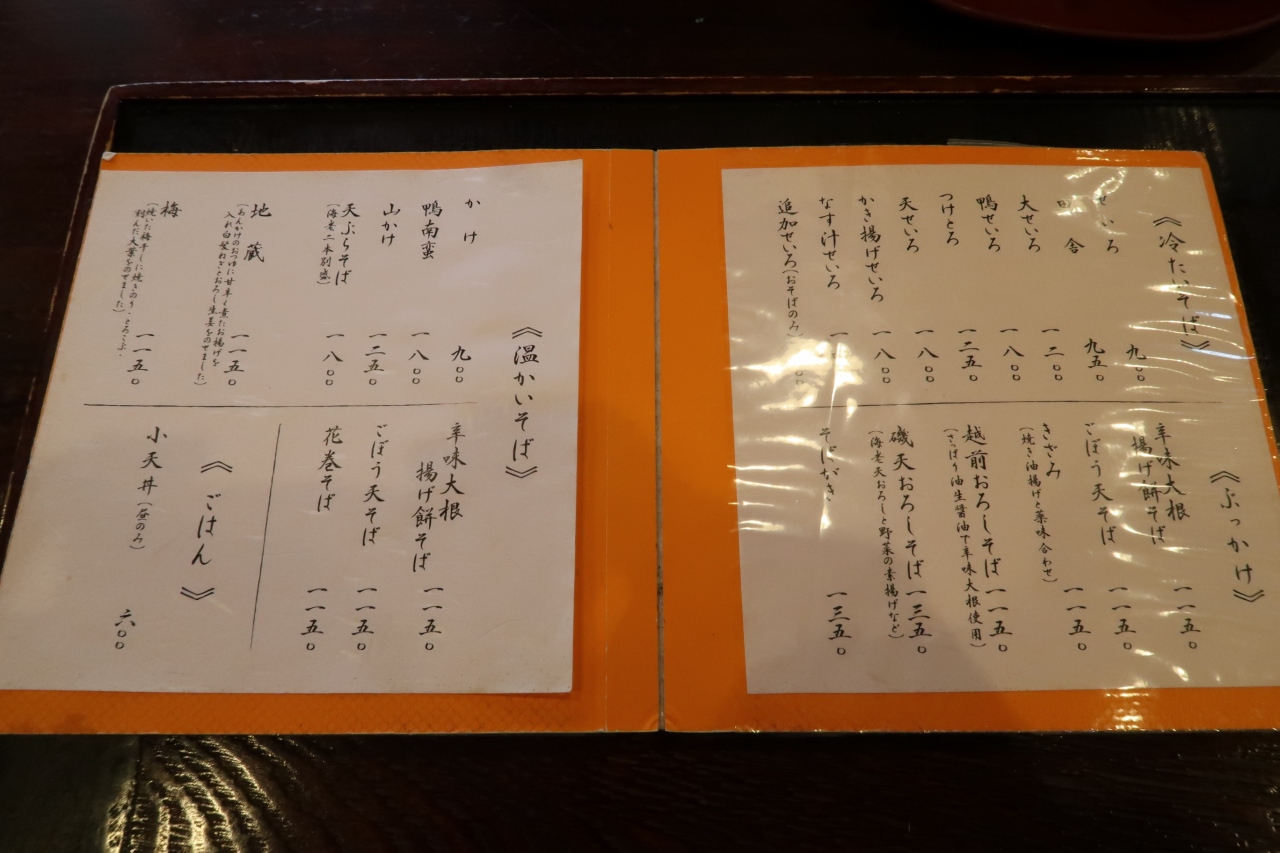 《冷たいそば》
せいろ 九〇〇
田舎 九五〇
大せいろ 一二〇〇
鴨せいろ 一八〇〇
つけとろ 一二五〇
天せいろ 一八〇〇
かき揚げせいろ 一八〇〇
なす汁せいろ
追加せいろ(おそばのみ)
《ぶっかけ》
辛味大根
揚げ餅そば 一一五〇
ごぼう天そば 一一五〇
きざみ 一一五〇
(焼き油揚げと薬味合わせ)
越前おろしそば 一一五〇
(さっぱり油生醤油で辛味大根使用)
磯天おろしそば 一三五〇
(海老天おろしと野菜の素揚げなど)
そばがき 一三五〇
《温かいそば》
かけ 九〇〇
鴨南蛮 一八〇〇
山かけ 一二五〇
天ぷらそば 一八〇〇
(海老二本別盛)
地蔵 一一五〇
(あんかけのおつゆに甘辛く煮たお揚げを
入れ白髪ねぎとおろし生姜をのせました)
梅 一一五〇
(焼いた梅干しに焼きのり、とろろこぶ、
刻んだ大葉をのせました)
辛味大根
揚げ餅そば 一一五〇
ごぼう天そば 一一五〇
花巻そば 一一五〇
《ごはん》
小天丼(昼のみ) 六〇〇